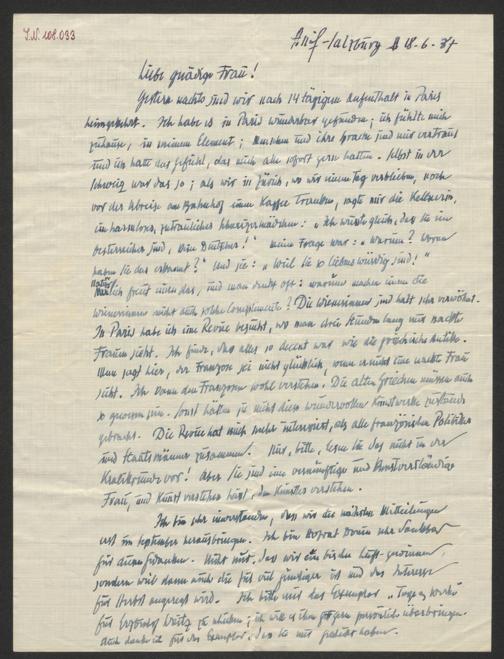 I.N. 108.033
Anif-Salzburg 18-6-37
Liebe gnädige Frau!
Gestern nachts sind wir nach 14 tägigem Aufenthalt in Paris
heimgekehrt. Ich habe es in Paris wunderbar gefunden; ich fühlte mich
zuhause, in meinem Element; Menschen und ihre Sprache sind mir vertraut
und ich hatte das Gefühl, dass mich alle sofort gern hatten. Selbst in der
Schweiz war das so; als wir in Zürich, wo wir einen Tag verblieben, noch
vor der Abreise am Bahnhof einen Kaffee tranken, sagte mir die Kellnerin,
ein harmloses, zutrauliches Schweizermädchen: "Ich wusste gleich, dass Sie ein
Oesterreicher sind, kein Deutscher!" Meine Frage war: "Warum? Woran
haben Sie das erkannt?" Und sie: "Weil Sie so liebenswürdig sind!"
Natürlich freut einen das, und man denkt oft: warum machen einem die
Wienerinnen nicht auch solche Complimente? Die Wienerinnen sind halt sehr verwöhnt.
In Paris habe ich eine Revue besucht, wo man drei Stunden lang nur nackte
Frauen sieht. Ich finde, das alles so decent war wie die griechische Antike.
Man sagt hier, der Franzose sei nicht glücklich, wenn er nicht eine nackte Frau
sieht. Ich kann den Franzosen wohl verstehen. Die alten Griechen müssen auch
so gewesen sein. Sonst hätten sie nicht diese wundervollen Kunstwerke zustande
gebracht. Die Revue hat mich mehr interessiert, als alle französischen Politiker
und Staatsmänner zusammen! Nur, bitte, lesen Sie das nicht in der
vor! Aber Sie sind eine vernünftige und kunstverständige
Frau, und Kunst verstehen heisst, den Künstler verstehen.
Ich bin sehr einverstanden, dass wir die nächsten Mitteilungen
erst im September herausbringen. Ich bin Hofrat sehr dankbar
für diesen Gedanken. Nicht nur, dass wir ein bischen Luft gewinnen
sondern weil dann auch die Zeit viel günstiger ist und das Interesse
für Herbst angeregt wird. Ich bitte mir das Exemplar
für zu schicken; ich will es ihm persönlich überbringen.
Auch danke ich für das Exemplar, das Sie mir geschickt haben.